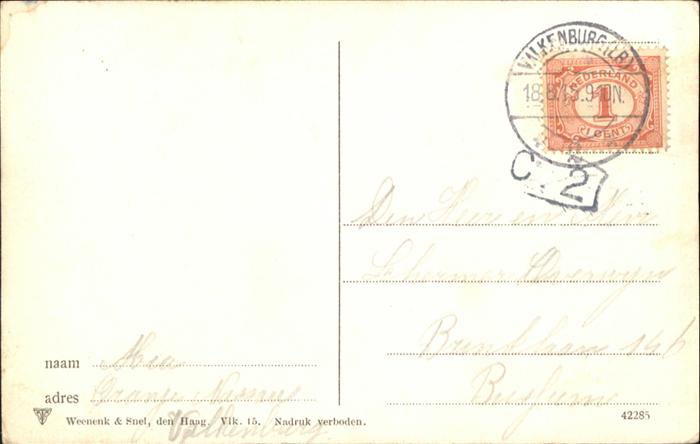 VALKENBURG (LB)
18.8.15.9-10N.
NEDERLAND
1
1 CENT
C. 2
Den Heer en Mevr
Schermer Overwyn
Brinklaan 146
Bussum
naam Mia
adres Oranje Nassau
Valkenburg
Weenenk & Snel, den Haag. Vlk. 15. Nadruk verboden.
42285